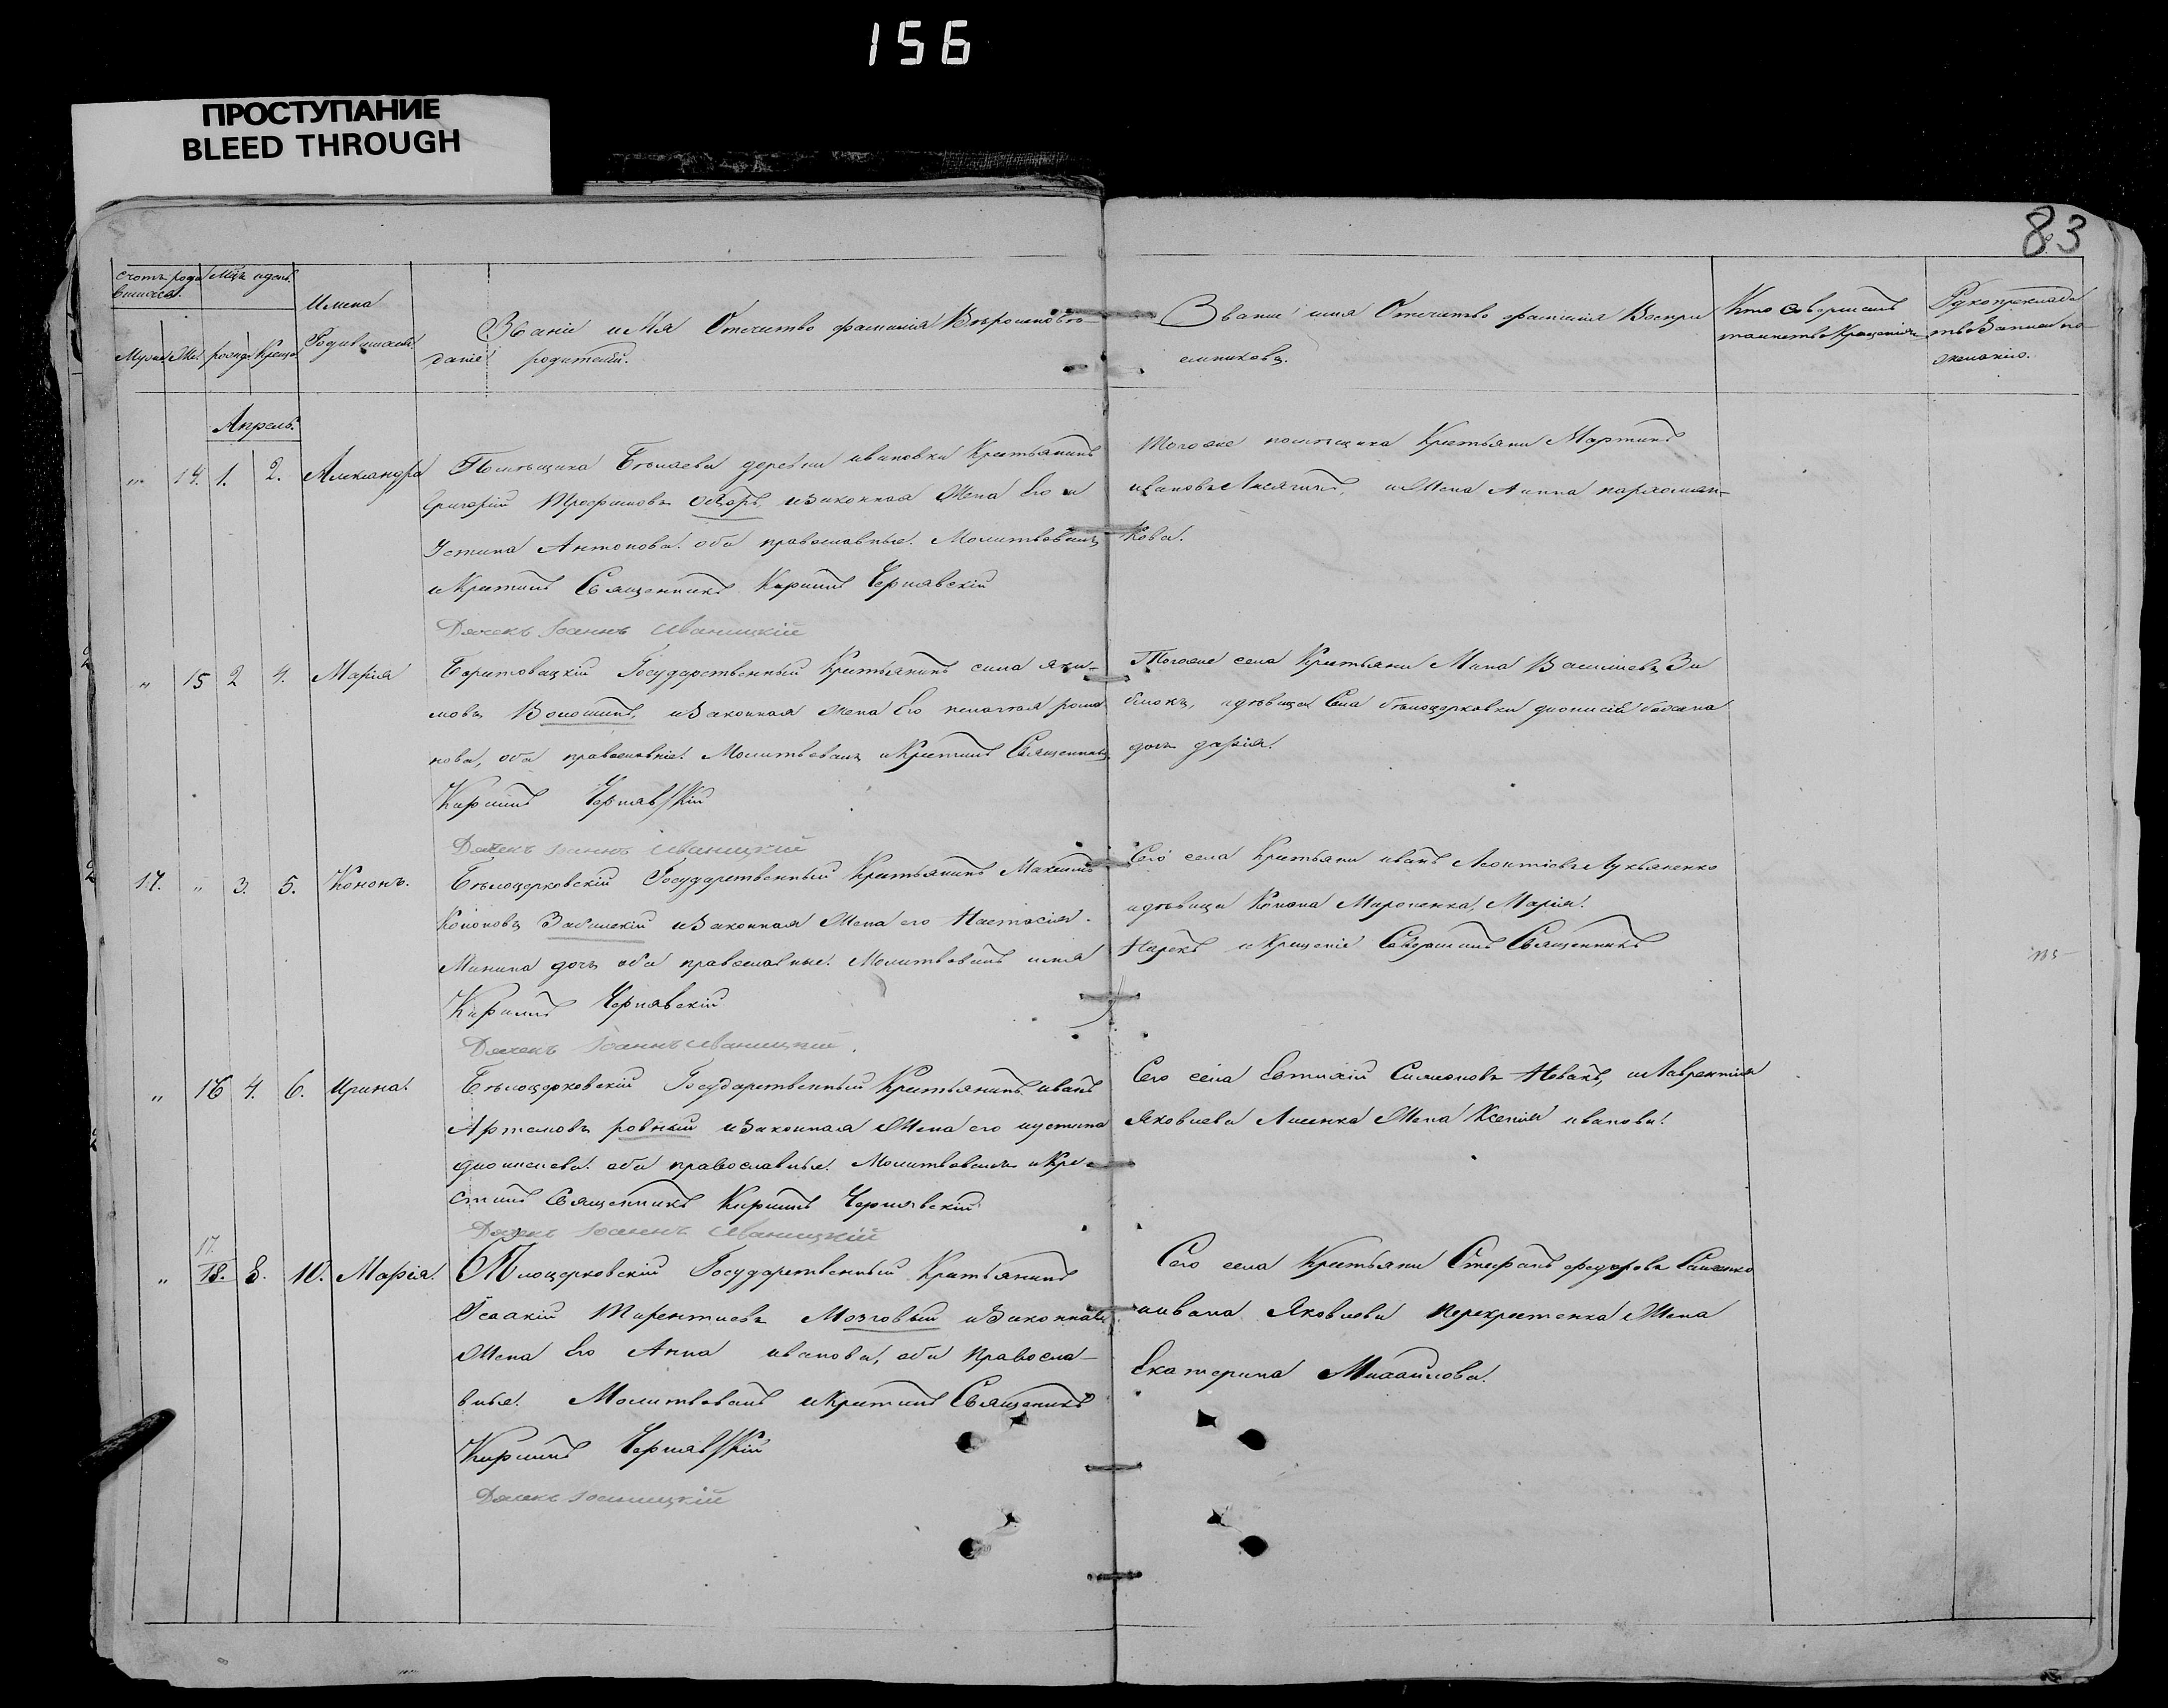 156
ПРОСТУПАНИЕ
BLEED THROUGH
83
счотъ роди Мцъ идень
вшихся.
Имена
Родившихся
Званіе имя Отечитво фамилія Вѣроисповѣ-
даніе родителей.
Званіе имя Отечитво фамилія Воспри
емниковъ.
Кто Совершалъ
таинство Крещенія
Рукоприклад
тво Записи по
желанію.
Муж. Же. рожд. Крещ.
Апрель.
" 14. 1. 2. Александра
Помѣщика Бѣлаева деревни ивановки Крестьянинъ
Григорій Трофимовъ изаконная Жена Его
Устина Антонова. оба православные. Молитвовалъ
иКрестилъ Священникъ Кирилъ Чернявскій
Дячекъ Іоаннъ Иваницкій
Тогоже помѣщика Крестьяни Мартинъ
ивановъ иЖена Анна пархомен-
кова.
" 15 2 4. Марія
Государственный Крестьянинъ сила яки-
мовъ Волошинъ, изаконная жена Его пелагея рома
нова, оба православніе. Молитвовалъ иКрестилъ Священникъ
Кирилъ Чернявскій
Дячекъ Іоаннъ Иваницкій
Тогоже села Крестьяни Мина Василіевъ За
блокъ, идѣвица Села бѣлоцерковки дионисія
дочь дарія.
17. " 3. 5. Кононъ.
Бѣлоцерковскій Государственный Крестьянинъ Максимъ
Кононовъ изаконная Жена его Настасія
Минина дочь оба православные. Молитвовалъ имя
Кирилъ Чернявскій
Дячекъ Іоаннъ Иваницкій.
Сего села Крестьяни иванъ Леонтіевъ Лукьяненко
идѣвица Конона Мироненка, Марія.
Нарекъ иКрещеніе Совершилъ Священникъ
" 16 4. 6. Ирина.
Бѣлоцерковскій Государственный Крестьянинъ иванъ
Артемовъ ровный изаконная Жена его иустина
дионисиева. оба православные. Молитвовалъ иКре-
стилъ Священникъ Кирилъ Чернявскій
Дячекъ Іоаннъ Иваницкій
Сего села Евтихій Симеоновъ Новакъ, иЛаврентія
Яковлева Лисенка Жена Ксенія иванова.
17.
" 18. 8. 10. Марія.
Бѣлоцерковскій Государственный Крестьянинъ
Исаакій Терентиевъ Мозговый изаконная
Жена Его Анна иванова, оба Правосла-
вные. Молитвовалъ иКрестилъ Священикъ
Кирилъ Чернявскій
Дячекъ
Сего села Крестьяни Стефанъ федоровъ
иивана Яковлева перехрестенка Жена
Екатерина Михайлова.